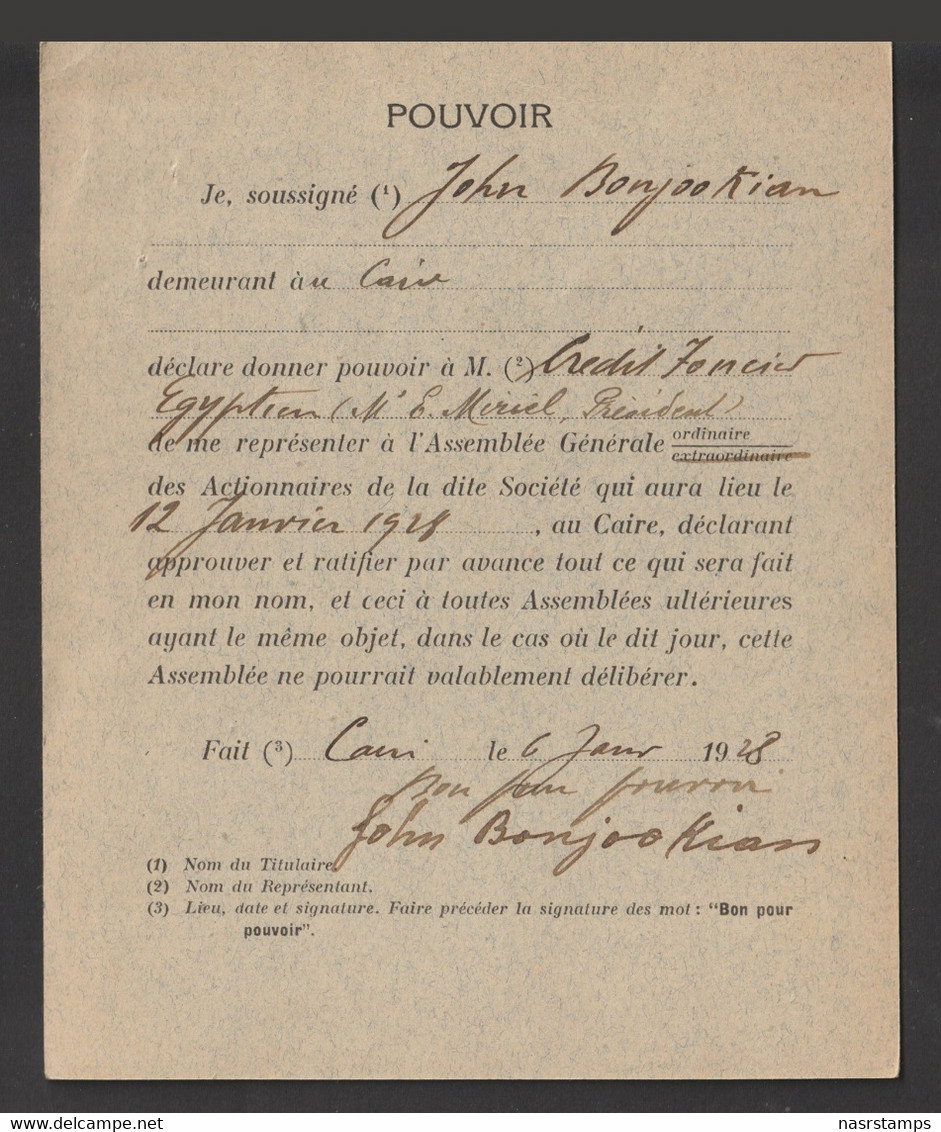 POUVOIR
Je, soussigné (¹) John Bonjookian
demeurant àu Caire
déclare donner pouvoir à M. (²) Credit Foncier
Egyptien (Mr E. Miriel, Président)
de me représenter à l'Assemblée Générale ordinaire
extraordinaire
des Actionnaires de la dite Société qui aura lieu le
12 Janvier 1928, au Caire, déclarant
approuver et ratifier par avance tout ce qui sera fait
en mon nom, et ceci à toutes Assemblées ultérieures
ayant le même objet, dans le cas où le dit jour, cette
Assemblée ne pourrait valablement délibérer.
Fait (³) Caire le 6 Janv 1928
Bon pour pouvoir
John Bonjookian
(1) Nom du Titulaire.
(2) Nom du Représentant.
(3) Lieu, date et signature. Faire précéder la signature des mot : "Bon pour
pouvoir".
www.delcampe.net
nasrstamps